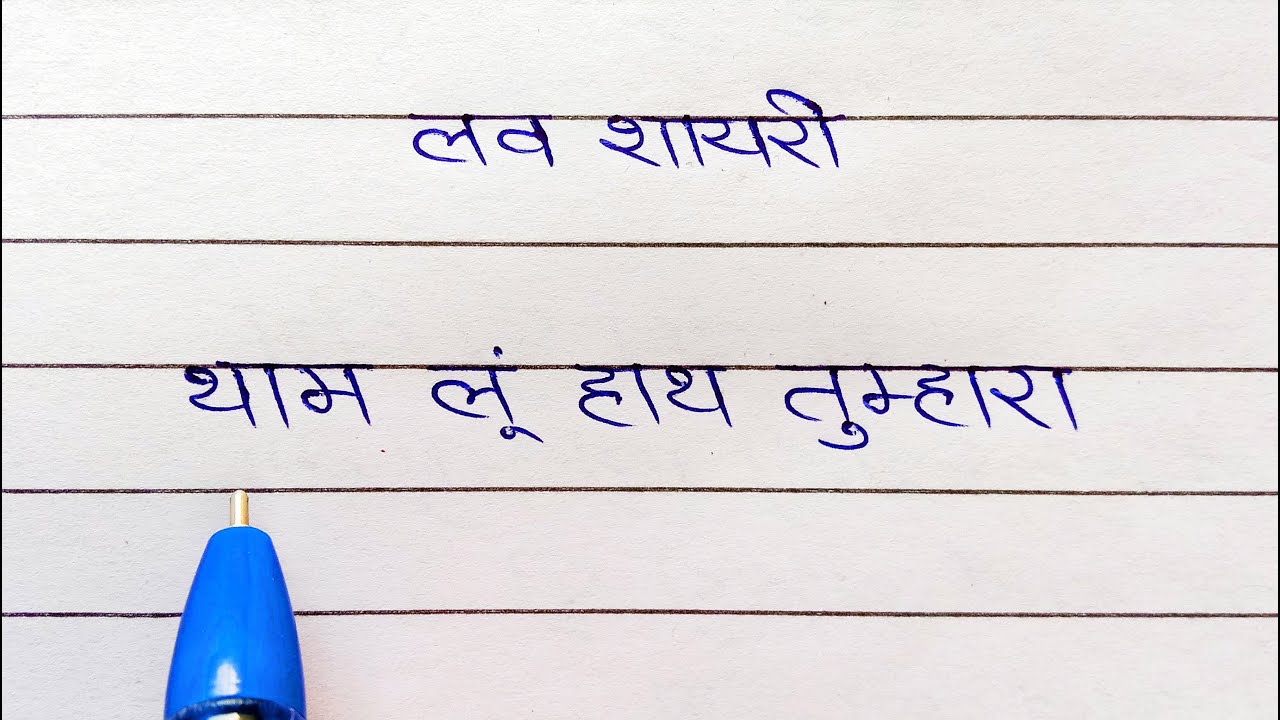 लव शायरी
थाम लूं हाथ तुम्हारा